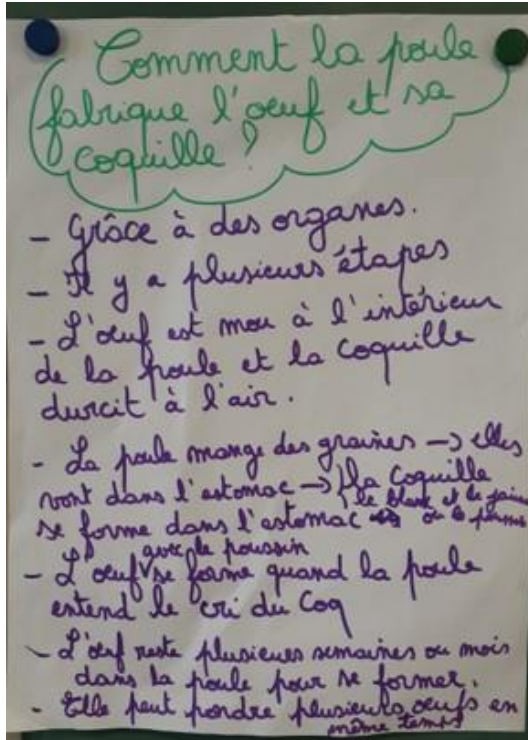 Comment la poule
fabrique l'oeuf et sa
coquille ?
- Grâce à des organes.
- Il y a plusieurs étapes
- L'œuf est mou à l'intérieur
de la poule et la coquille
durcit à l'air.
- La poule mange des graines → elles
vont dans l'estomac → la coquille
le blanc et le jaune
se forme dans l'estomac ou le
avec le poussin
- L'œuf se forme quand la poule
entend le cri du Coq
- L'œuf reste plusieurs semaines ou mois
dans la poule pour se former.
- Elle peut pondre plusieurs œufs en
même temps